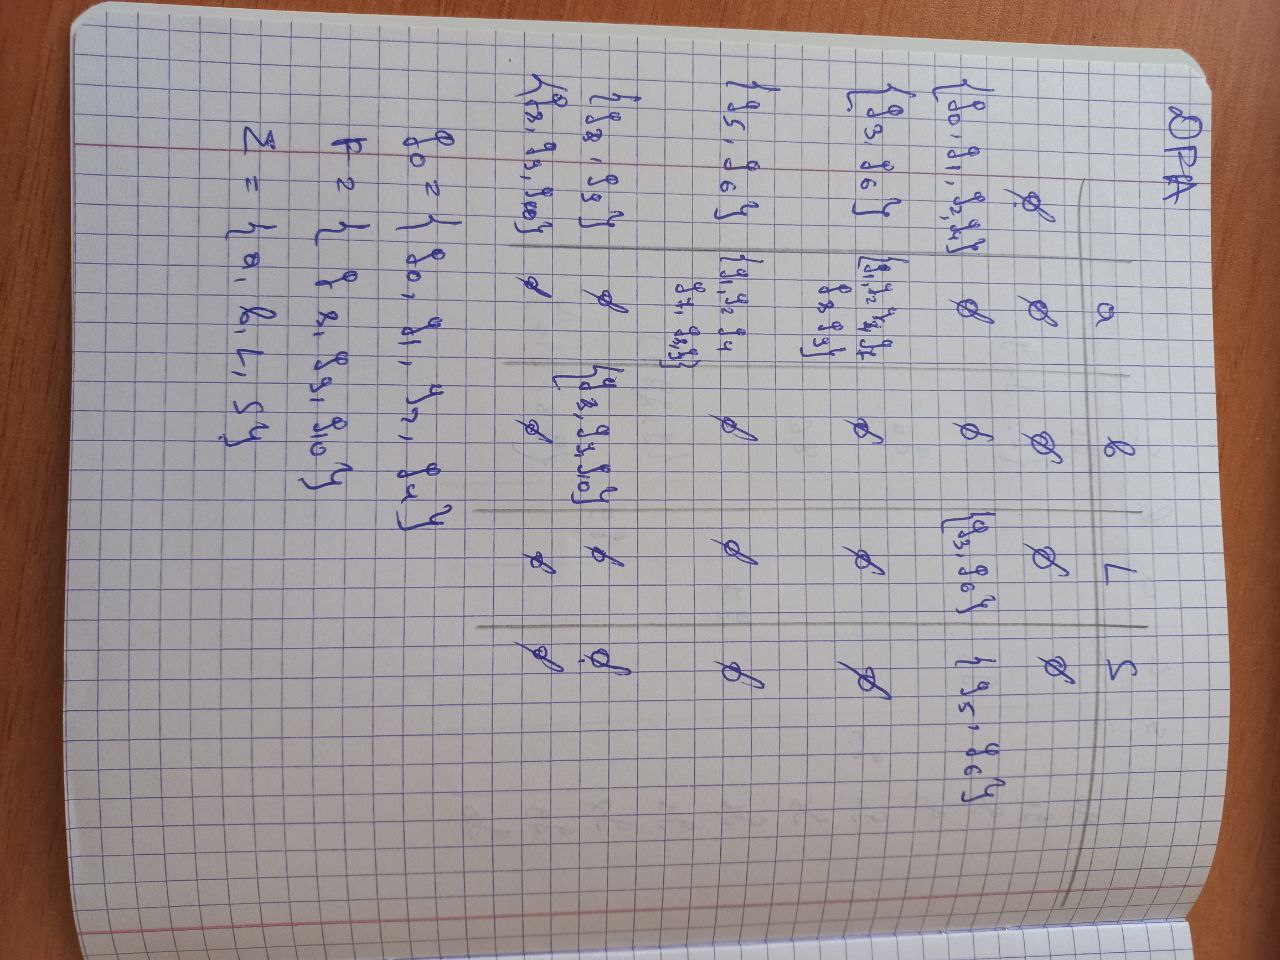 DPA
a b L S
∅ ∅ ∅ ∅ ∅
{q0, q1, q2, q4} ∅ ∅ {q3, q6} {q5, q6}
{q3, q6} {q1, q2 q4 q7 ∅ ∅ ∅
q8 q9}
{q5, q6} {q1, q2 q4 ∅ ∅ ∅
q7, q8, q9}
{q8, q9} ∅ {q8, q9, q10} ∅ ∅
{q8, q9, q10} ∅ ∅ ∅ ∅
q0 = { q0, q1, q2, q4}
F = { q8, q9, q10}
Σ = { a, b, L, S}